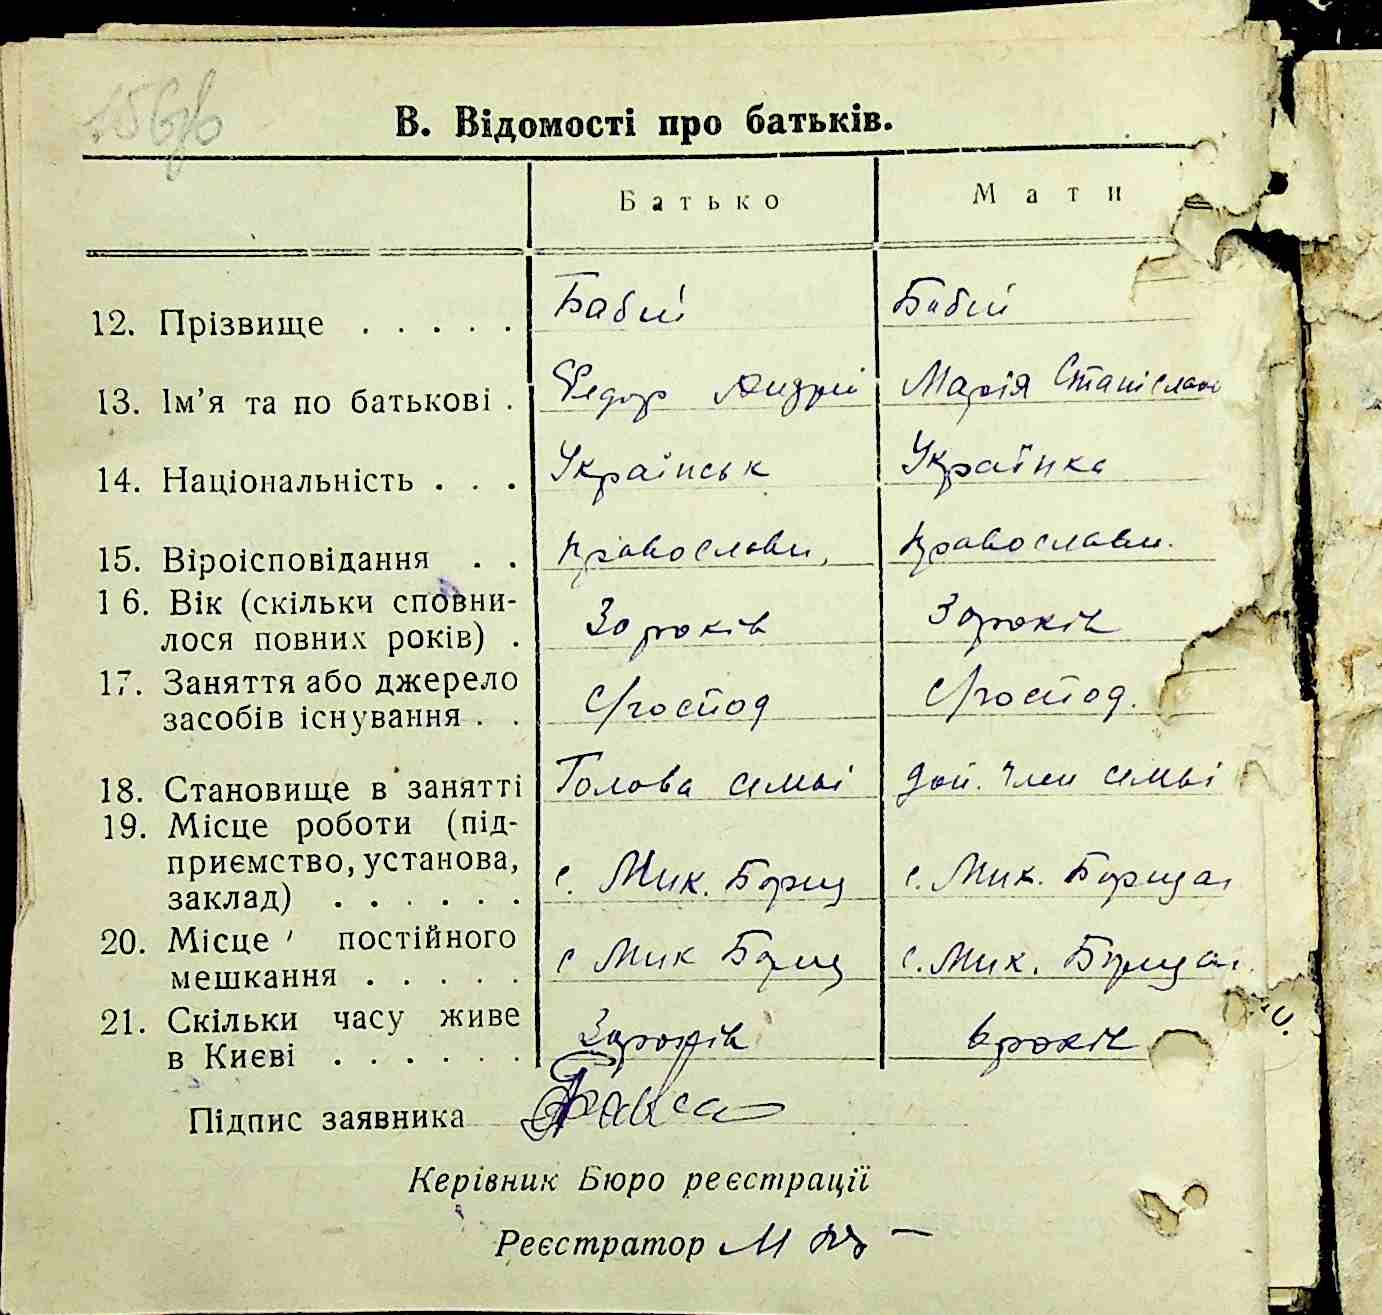 156
В. Відомості про батьків.
Батько Мати
12. Прізвище . . . . . Бабий Бабий
13. Ім'я та по батькові . Федор Андрій Марія Станіслав
14. Національність . . . Українськ Українка
15. Віроісповідання . . Православн. Православн.
16. Вік (скільки сповни-
лося повних років) . 30 років 30 років
17. Заняття або джерело
засобів існування . . С/господ С/господ.
18. Становище в занятті Голова семьі доп. член семьі
19. Місце роботи (під-
приємство, установа,
заклад) . . . . . . с. Мик. Борщ с. Мик. Борщаг
20. Місце постійного
мешкання . . . . . с Мик Борщ с. Мик. Борщаг.
21. Скільки часу живе
в Києві . . . . . . 30 років 6 років
Підпис заявника
Керівник Бюро реєстрації
Реєстратор